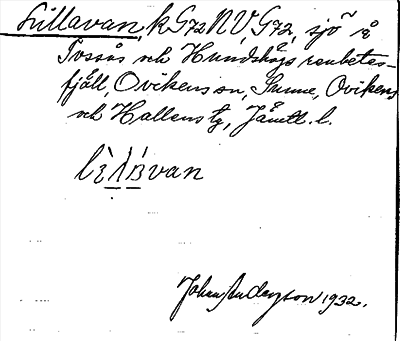 Lillavan, k G72 NV G72, sjö å
Tossås och Hundshögs renbetes-
fjäll, Ovikens sn, Sunne, Ovikens
och Hallens tg, Jämtl. l.
lìlávan
Johan Anderson 1932.